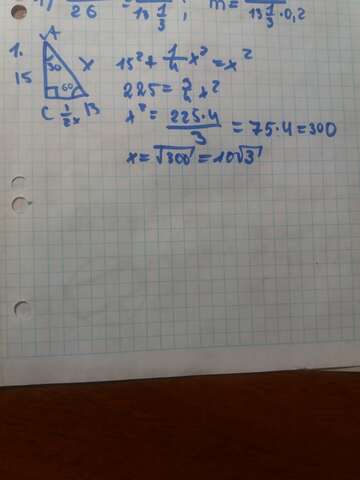 26 = 13 1/3 ; m = 13 1/3 · 0,2
1. A
15 30 x
60
C 1/2x B
15² + 1/4 x² = x²
225 = 3/4 x²
x² = 225·4/3 = 75·4 = 300
x = √300 = 10√3